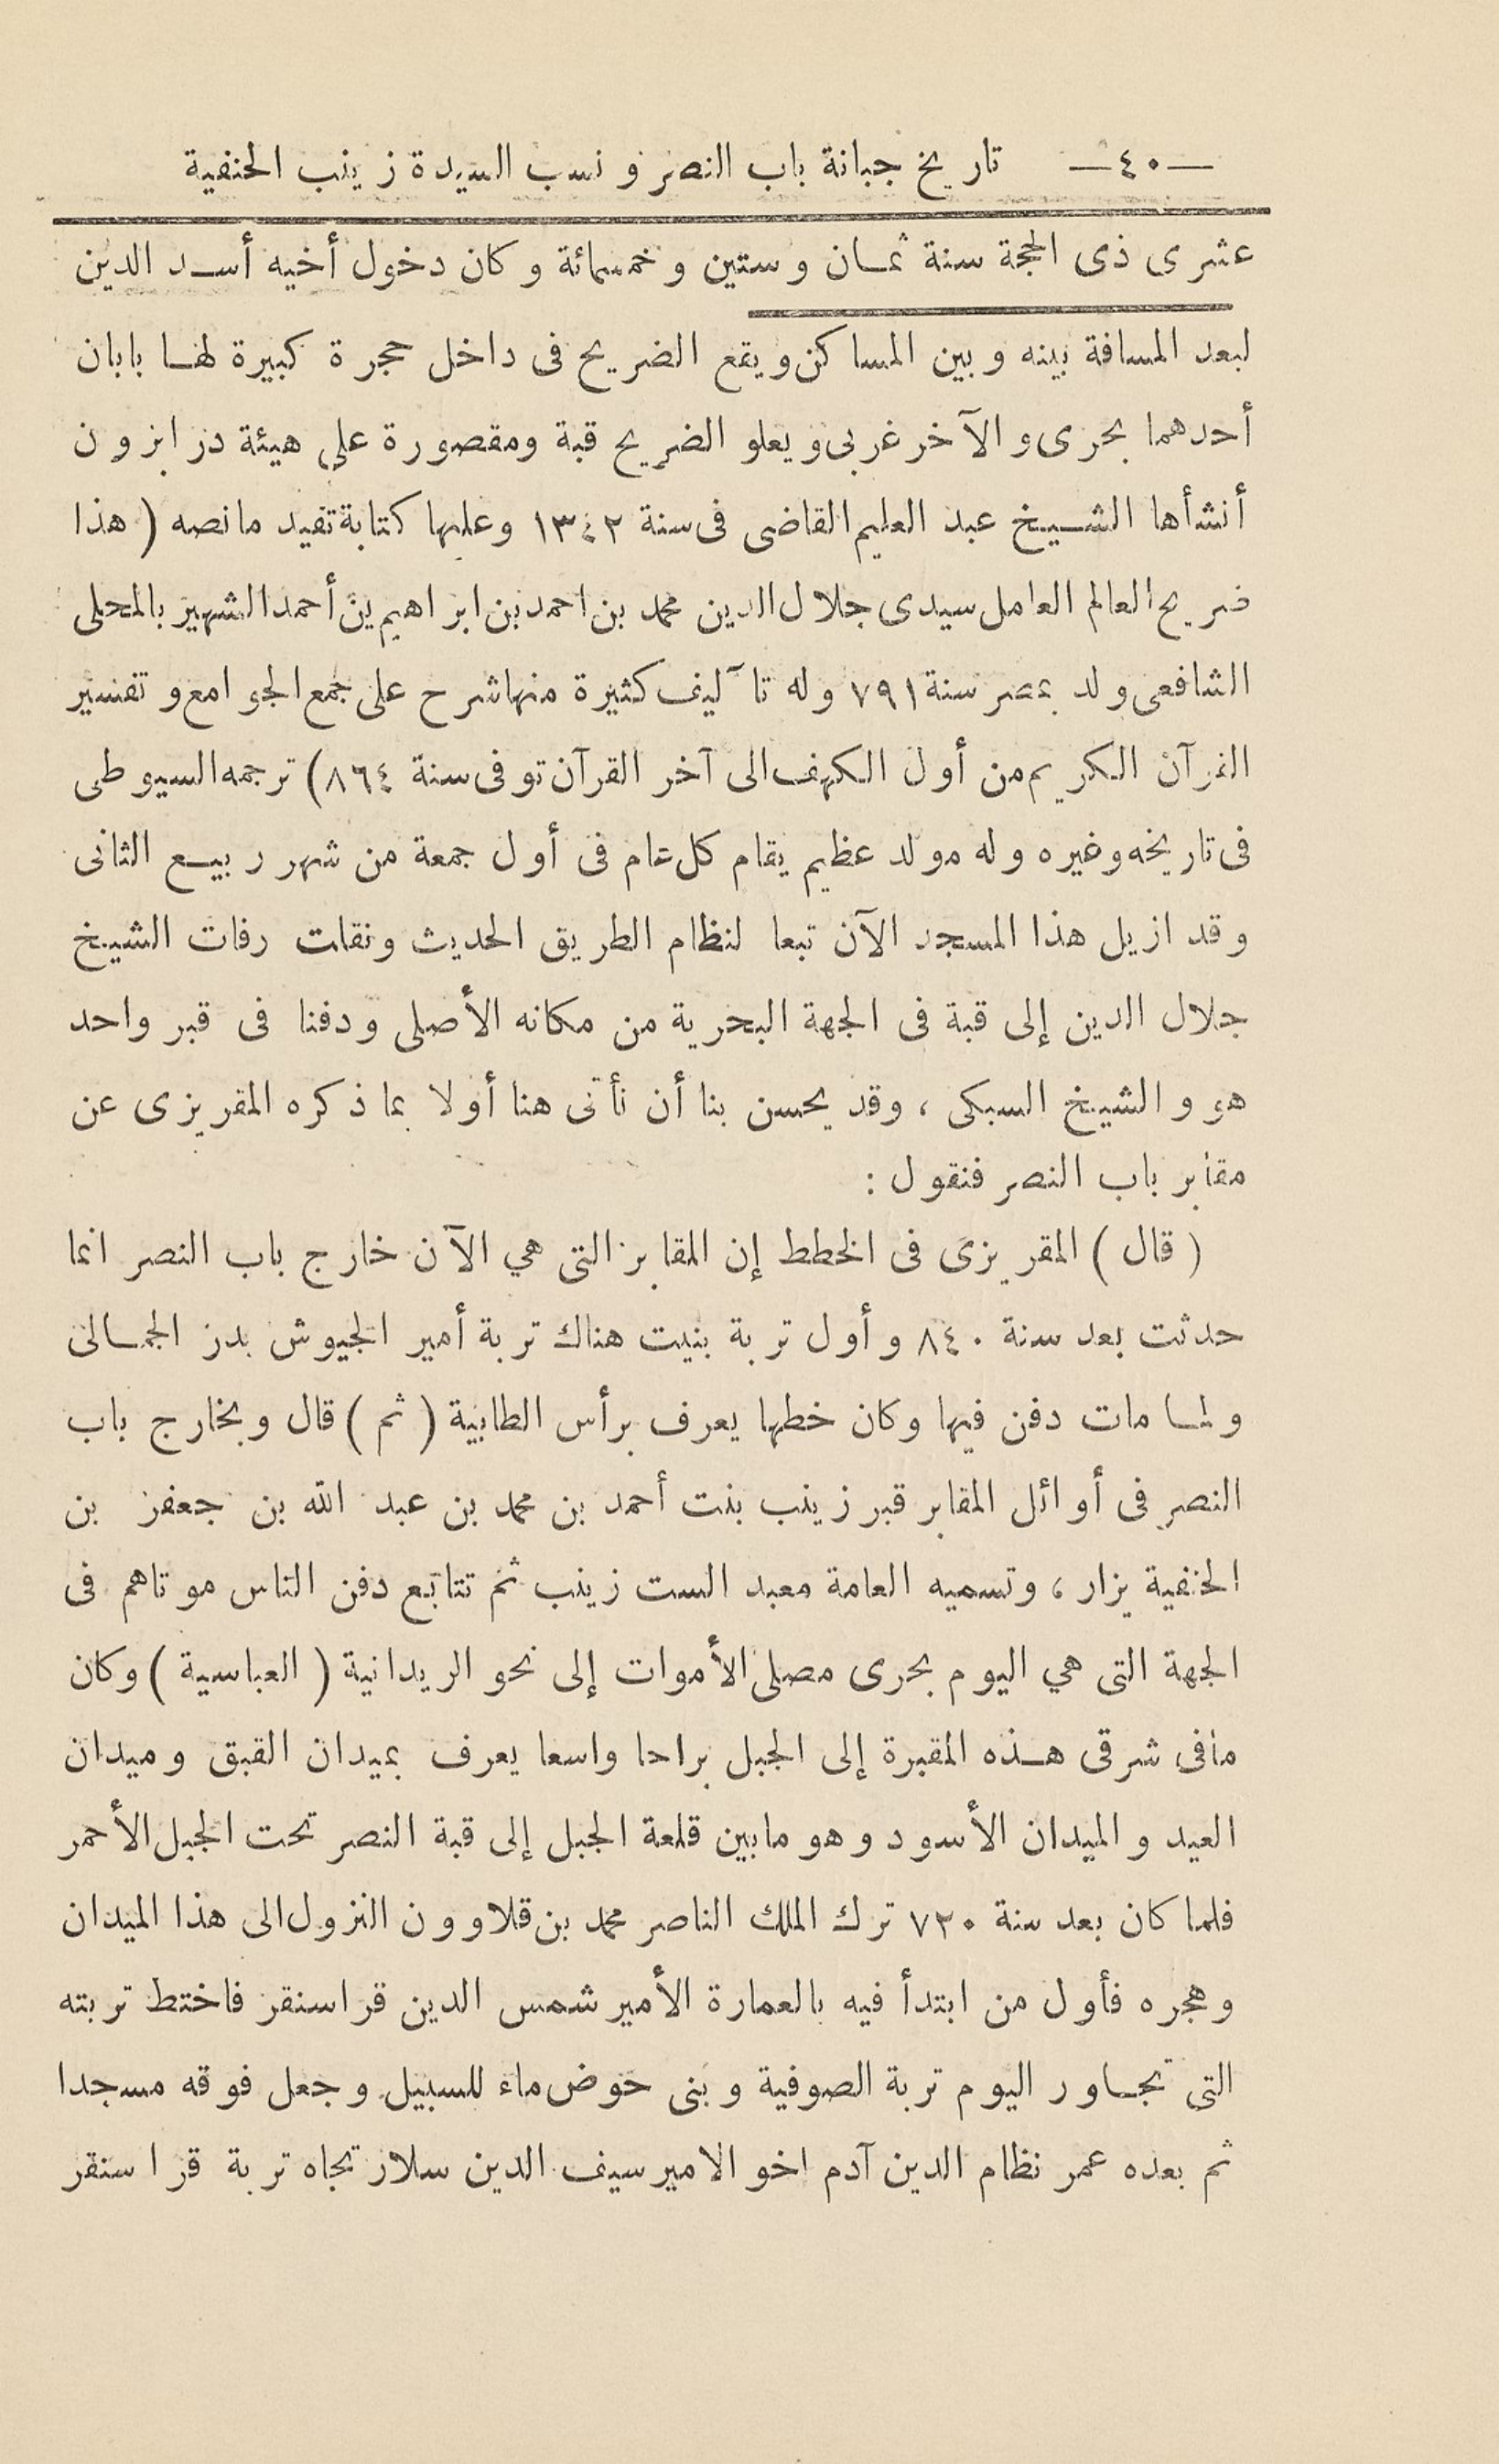 —٤٠— تاريخ جبانة باب النصر ونسب السيدة زينب الحنفية
عشرى ذى الحجة سنة ثمان وستين وخمسمائة وكان دخول أخيه أسد الدين
لبعد المسافة بينه وبين المساكن ويقع الضريح فى داخل حجرة كبيرة لها بابان
أحدهما بحرى والآخر غربى ويعلو الضريح قبة ومقصورة على هيئة درابزون
أنشأها الشيخ عبد العليم القاضى فى سنة ١٣٤٢ وعليها كتابة تفيد مانصه (هذا
ضريح العالم العامل سيدى جلال الدين محمد بن احمد بن ابراهيم بن أحمد الشهير بالمحلى
الشافعى ولد بمصر سنة ٧٩١ وله تآليف كثيرة منها شرح على جمع الجوامع وتفسير
القرآن الكريم من أول الكهف الى آخر القرآن توفى سنة ٨٦٤) ترجمه السيوطى
فى تاريخه وغيره وله مولد عظيم يقام كل عام فى أول جمعة من شهر ربيع الثانى
وقد ازيل هذا المسجد الآن تبعا لنظام الطريق الحديث ونقلت رفات الشيخ
جلال الدين إلى قبة فى الجهة البحرية من مكانه الأصلى ودفنا فى قبر واحد
هو والشيخ السبكى ، وقد يحسن بنا أن نأتى هنا أولا بما ذكره المقريزى عن
مقابر باب النصر فنقول :
(قال) المقريزى فى الخطط إن المقابر التى هي الآن خارج باب النصر انما
حدثت بعد سنة ٨٤٠ وأول تربة بنيت هناك تربة أمير الجيوش بدر الجمالى
ولما مات دفن فيها وكان خطها يعرف برأس الطابية (ثم) قال وبخارج باب
النصر فى أوائل المقابر قبر زينب بنت أحمد بن محمد بن عبد الله بن جعفر بن
الحنفية يزار ، وتسميه العامة معبد الست زينب ثم تتابع دفن الناس موتاهم فى
الجهة التى هي اليوم بحرى مصلى الأموات إلى نحو الريدانية (العباسية) وكان
مافى شرقى هذه المقبرة إلى الجبل براحا واسعا يعرف بميدان القبق وميدان
العيد والميدان الأسود وهو مابين قلعة الجبل إلى قبة النصر تحت الجبل الأحمر
فلما كان بعد سنة ٧٢٠ ترك الملك الناصر محمد بن قلاوون النزول الى هذا الميدان
وهجره فأول من ابتدأ فيه بالعمارة الأمير شمس الدين قراسنقر فاختط تربته
التى تجاور اليوم تربة الصوفية وبنى حوض ماء للسبيل وجعل فوقه مسجدا
ثم بعده عمر نظام الدين آدم اخو الامير سيف الدين سلار تجاه تربة قراسنقر